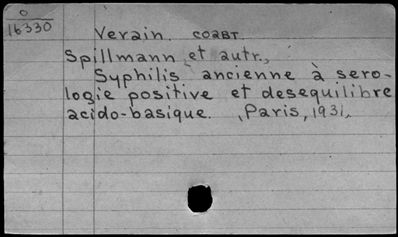 0
16330
Verain. СОАВТ.
Spillmann et autr.,
Syphilis ancienne à sero-
logie positive et desequilibre
acido-basique. Paris, 1931.